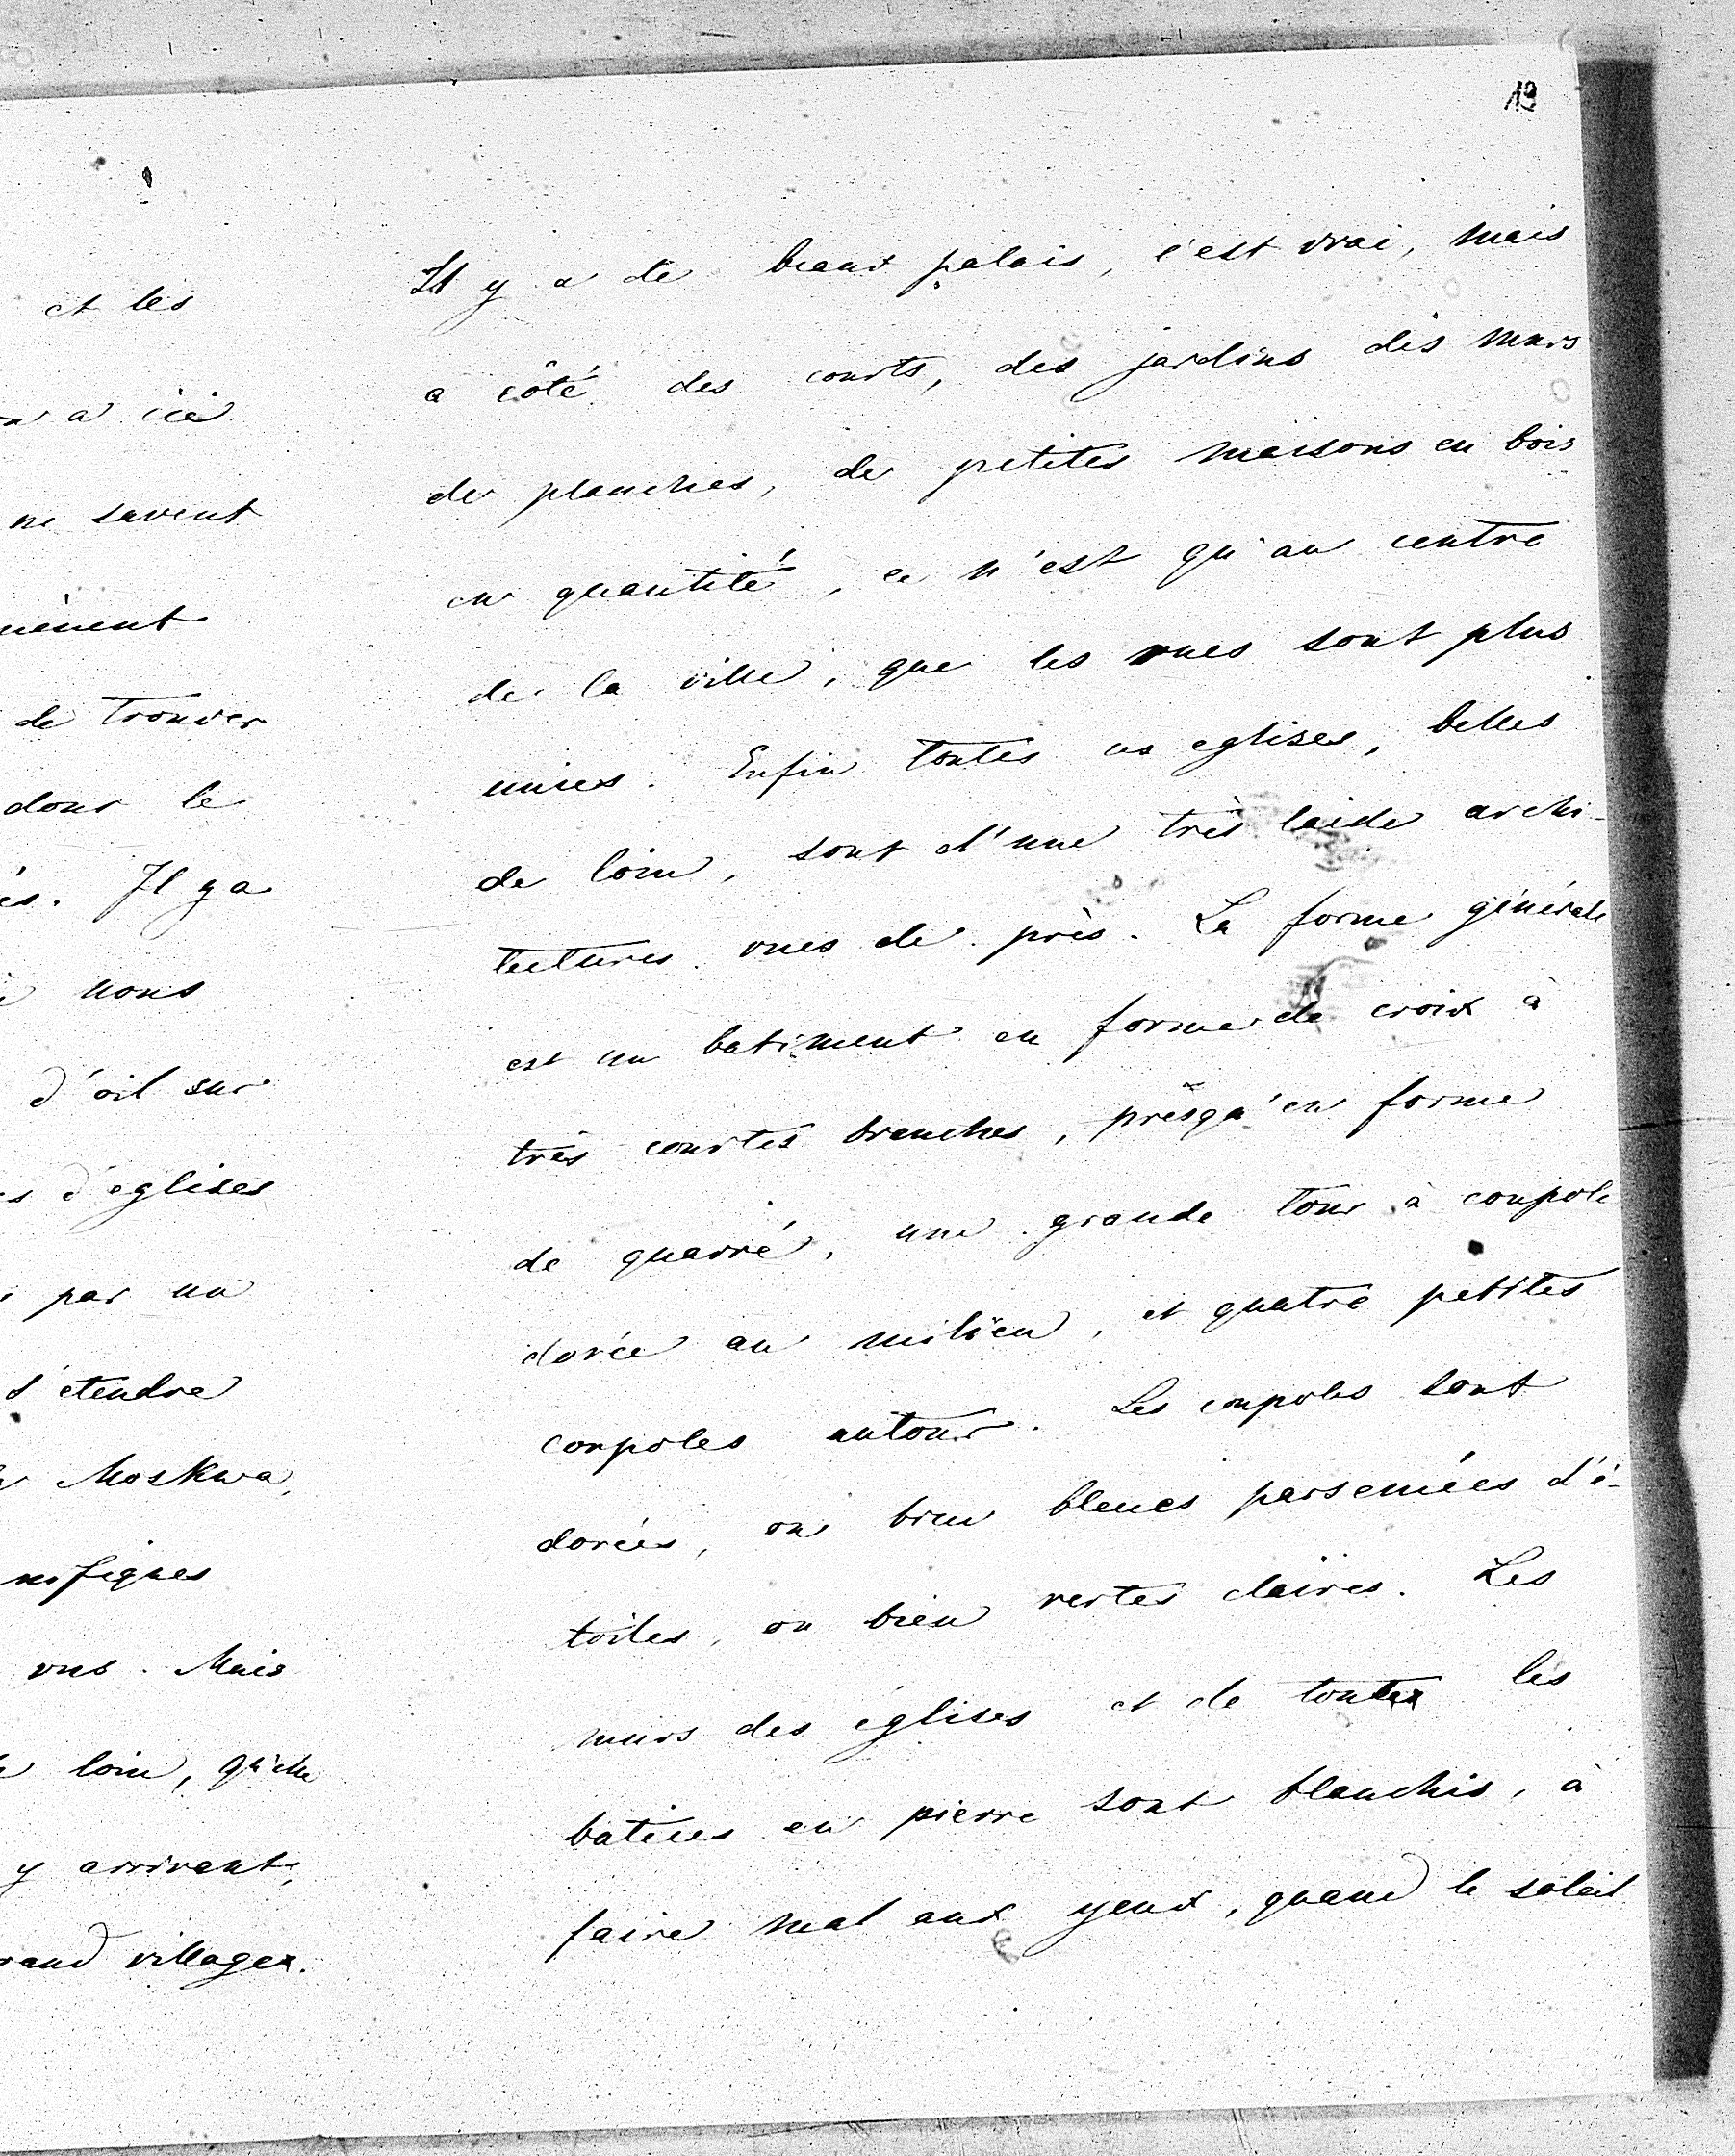 et les
a ici
ne savent
de trouver
donc le
Il y a
nous
d'oil sur
d'eglises
par un
s'étendre
Moskwa,
nifiques
vus. Mais
loin, qu'elle
y arrivent,
villages.
19
Il y a de beaux palais, c'est vrai, mais
a côté des courts, des jardins des murs
de planches, de petites maisons en bois
en quantité, ce n'est qu'au centre
de la ville, que les rues sont plus
unies. Enfin toutes ces eglises, belles
de loin, sont d'une très laide archi-
tectures vues de près. La forme générale
est un batiment en forme de croix à
très courtes branches, presqu'en forme
de quarré, une grande tour à coupole
dorée au milieu, et quatre petites
coupoles autour. Les coupoles sont
dorées, ou bien bleues parsemées d'é-
toiles, ou bien vertes claires. Les
murs des églises et de toutes les
batises en pierre sont blanchis, à
faire mal aux yeux, quand le soleil